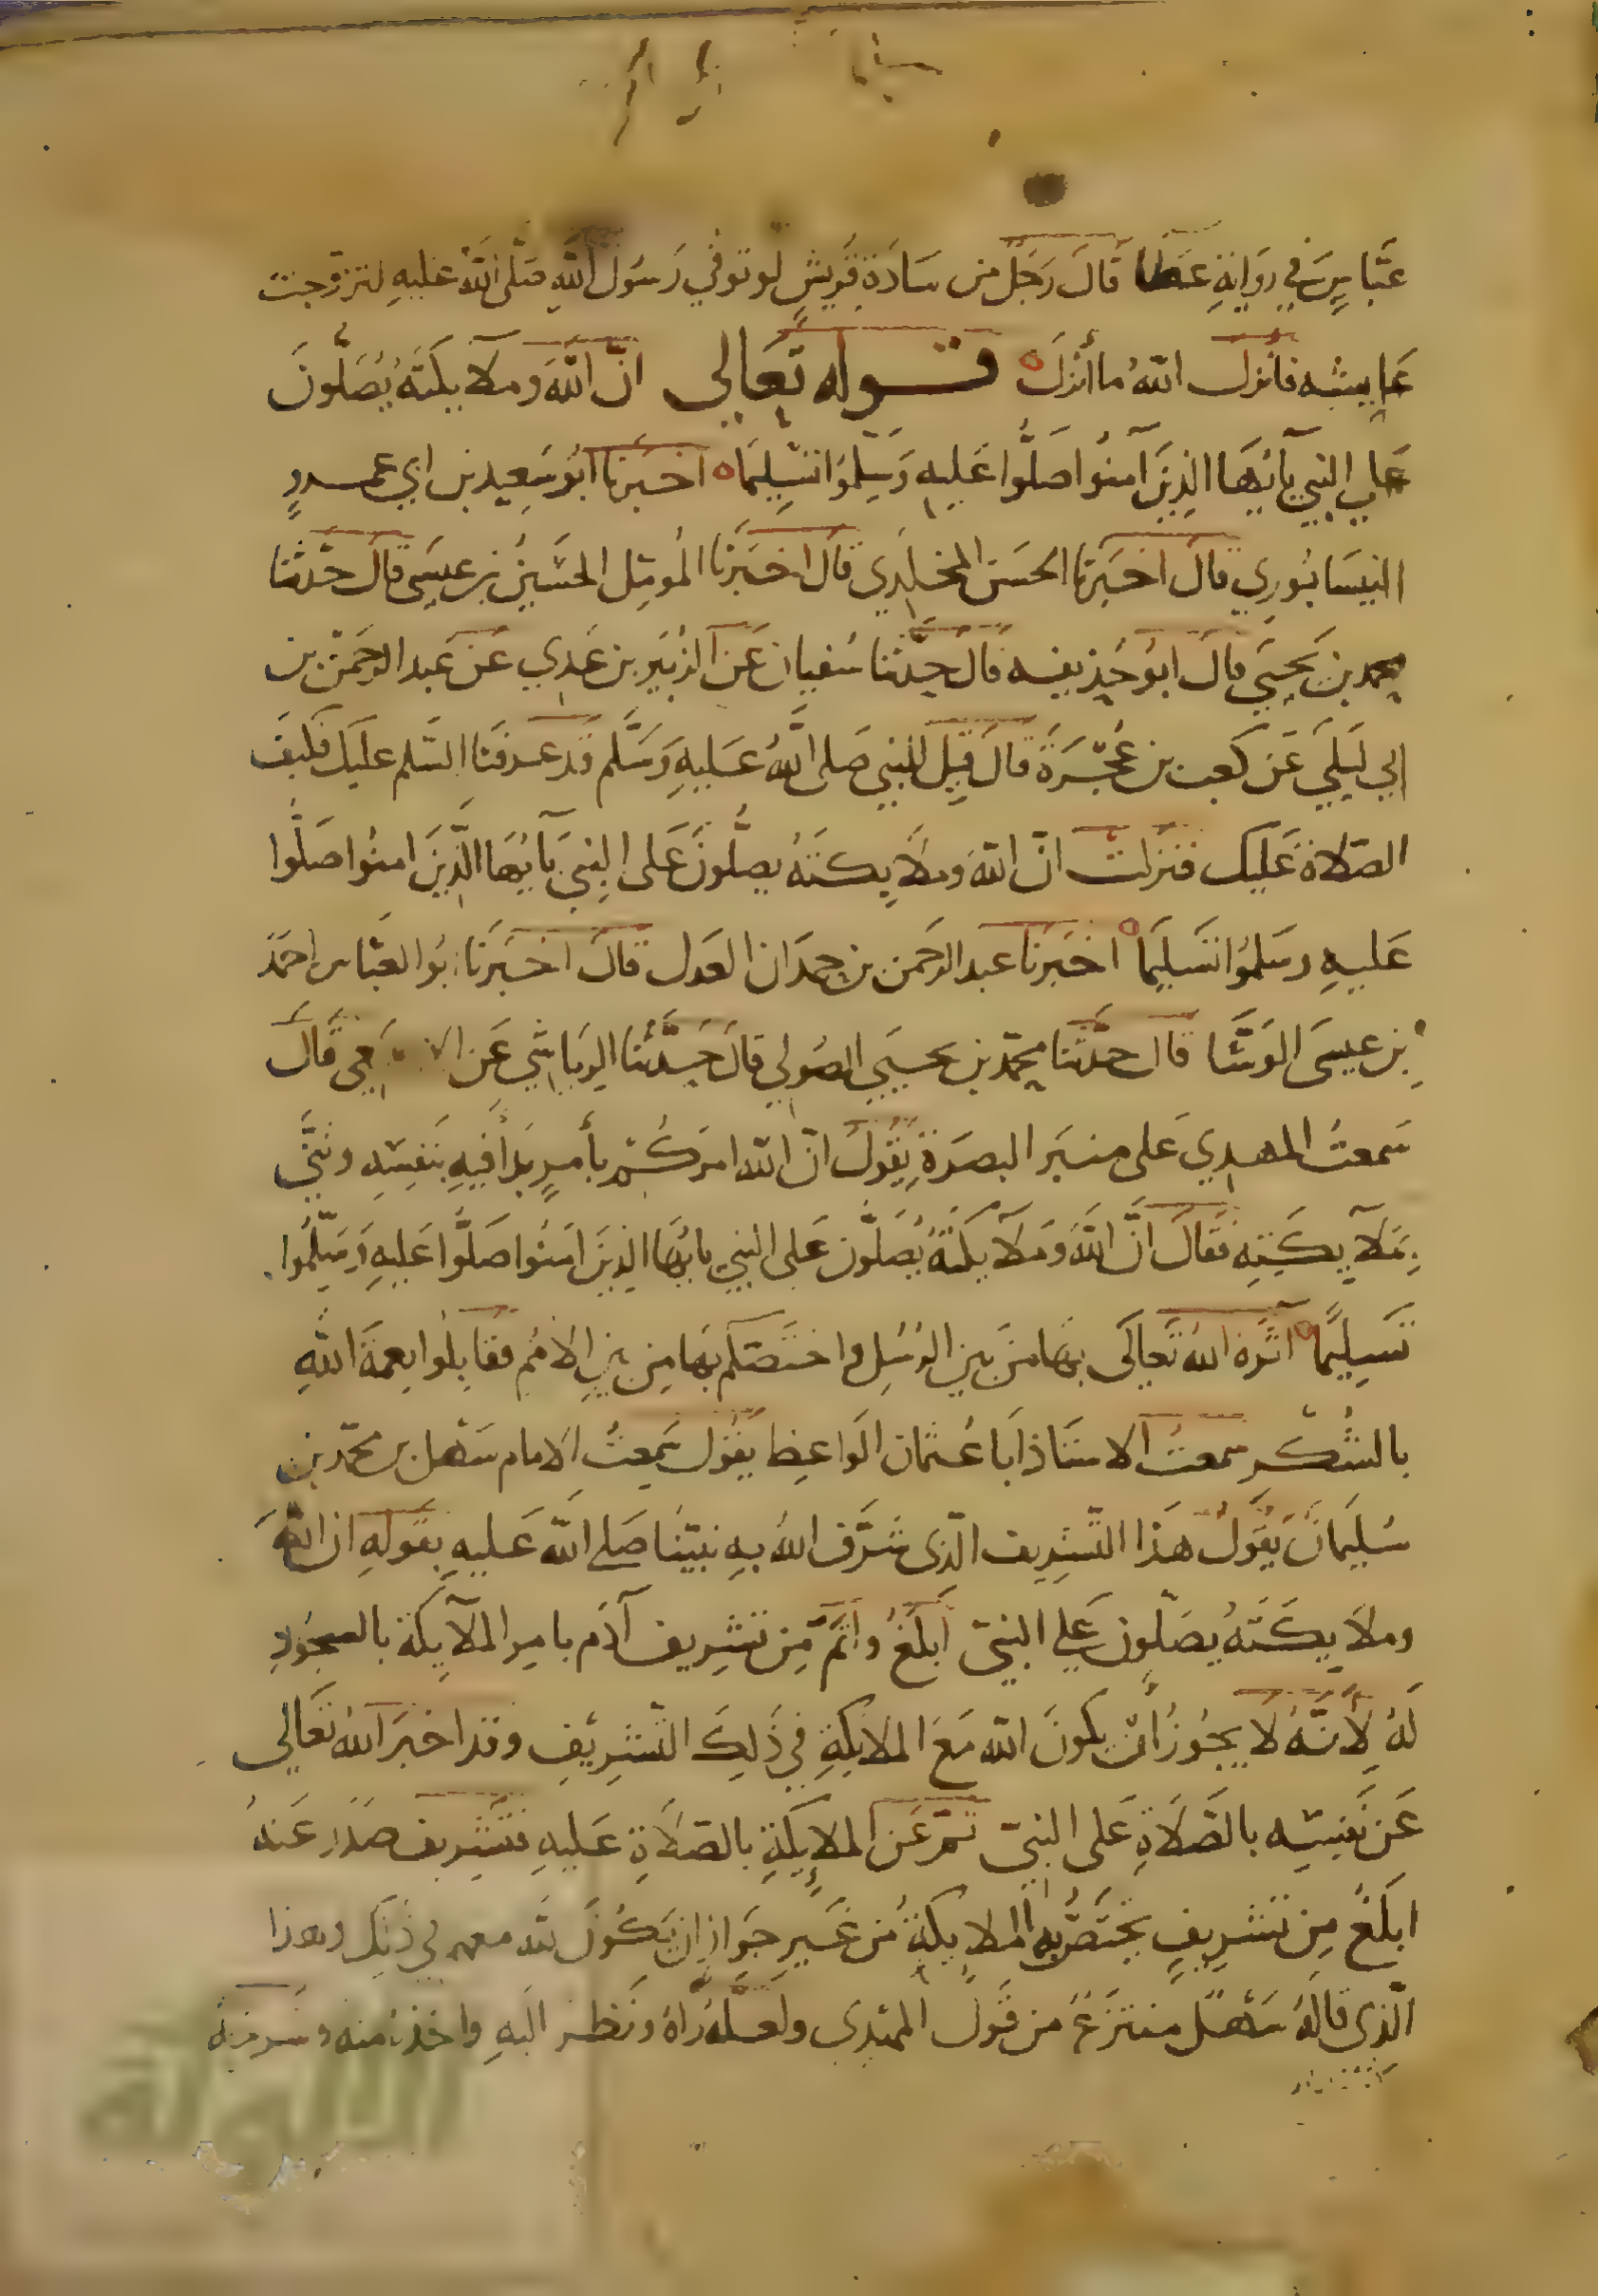 عَبَّاسٍ فِي رِوَايَةِ عَطَا قَالَ رَجُلٌ من سَادَةِ قُرَيشٍ لو توفي رَسُول اللَّهِ صَلَّى اللَّهُ عَليهِ لتزوجت
عَايِشه فَانزل اللهُ ما أنزلَ ○ قوله تعالى انّ اللَّهَ وملآيكتَهُ يُصَلُّونَ
عَلى النبي يآيُّهَا الذِينَ آمنُوا صَلُّوا عَليهِ وَسَلِّمُوا تَسْلِيمًا ○ اخبَرنَا ابُو سَعِيد بن ابي عمرو
النيسَابُوري قالَ اخبَرنَا الحسَن المخلدي قال اخبَرنَا المؤمل الحسَين بن عيسَى قال حَدثنا
محمد بن يَحيَى قالَ ابُو حُذيفه قَال حَدَّثنا سُفيان عَن الزبَير بن عَدِي عَن عَبد الرحمن بن
ابي لَيلَى عَن كَعب بن عُجْرَةَ قال قِيلَ للنبي صَلى اللَّهُ عَليهِ وَسَلَّم قد عرفنَا السَّلم عليك فكيفَ
الصَّلاة عَليك فنزلت انّ اللهَ وملآيكتهُ يصلُّونَ عَلى النبيّ يآيُّهَا الَّذِينَ امنُوا صَلُّوا
عَليهِ وسَلمُوا تَسليمًا ○ اخبَرنَا عبد الرحمن بن حمدَان العَدل قال اخبَرنَا ابُو العَبَّاس احمَد
بن عيسَى الوَشَّا قال حدَّثنَا محمّد بن يحيَى الصُولي قالَ حَدَّثنا الرياشي عَن الاصمعي قَالَ
سَمعتُ المهدي عَلى منبَر البصرَةِ يَقُولُ انّ الله امركُم بأمرٍ بدَأ فيهِ بنَفسِهِ وثنَّى
بِمَلآيكَتِهِ فقالَ انَّ اللَّهَ وَمَلآيكَتَهُ يُصَلُّون عَلى النبي يايُّها الذينَ امَنُوا صَلُّوا عَليهِ وَسَلِّمُوا
تَسلِيمًا ○ اثَرَهُ اللهُ تَعالَى بهَا منَ بين الرسُل واختَصّكم بهَا مِن بينِ الامُم فقَابِلُوا نِعمَةَ اللَّهِ
بالشُّكر سمعتُ الاستاذ ابَا عُثمان الوَاعِظ يقُول سَمِعتُ الامام سَهل بن محمّد بن
سُليمَانَ يَقُولُ هَذا التّشريف الّذى شرَّف اللهُ بهِ نبيّنَا صَلى اللهُ عَليهِ بقولهِ ان اللَّهَ
وملآيكَتَهُ يصَلّون عَلى النبيّ ابلَغُ واتَمُّ مِن تشرِيف آدَم بامرِ الملآيكة بالسجُودِ
لَهُ لِأَنَّهُ لا يجُوزُ أَن يكُونَ الله مَعَ الملايكةِ في ذَلِكَ التّشرِيفِ وقد اخبرَ اللهُ تعَالى
عَن نفسِه بالصَّلَاةِ عَلى النبيّ ثم عَن الملايكَةِ بالصلَاةِ عَليهِ فتشرِيف صَدَر عَنهُ
ابلَغُ مِن تشرِيفٍ تختَصّ بهِ الملايكةُ من غَيرِ جَوَازِ ان يَكُونَ الله معهم في ذلك وهذا
الّذي قالهُ سَهْل منتزَعٌ من قَول المهدي ولعَلَّه رَاهُ ونَظر اليهِ واخذه منه وشرحه
الالوكة